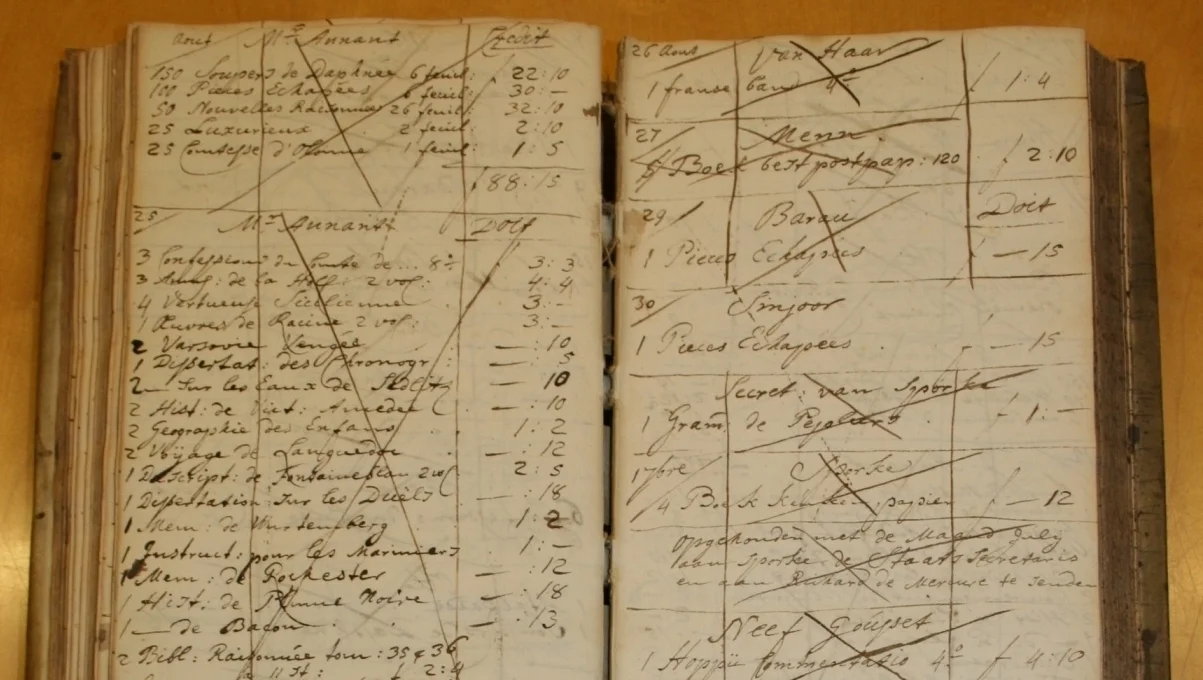 Aout Mr. Aunant Credit
150 Soupers de Daphnée 6 feuil: f 22:10
100 Pieces Echapées 6 feuil: 30:—
50 Nouvelles Raisonnées 26 feuil: 32:10
25 Luxurieux 2 feuil: 2:10
25 Comtesse d'Olonne 1 feuil: 1:5
f 88:15
25 Mr. Aunant Doit
3 Confessions du Comte de ... 8o. 3:3
3 de la Holl: 2 vol: 4:4
4 Vertueuse Sicilienne 3:—
1 Œuvres de Racine 2 vol: 3:—
2 Varsovie — :10
1 Dissertat: des Chronogr: — :5
2 — Sur les Eaux de Sedlitz — 10
2 Hist: de Vict: Amedée — :10
2 Geographie des Enfans 1:2
2 Voijage de Languedoc — :12
1 Descript: de Fontainebleau 2 vol: 2:5
1 Dissertation Sur les Duels — :18
1 Mem: de Wurtemberg 1:2
1 Instruct: pour les Mariniers 1:—
1 Mem: de Rochester — :12
1 Hist: de Plume Noire — :18
1 — de Bacon — :13
2 Bibl: Raisonnée tom: 35 & 36
f 2:4
26 Aout van Haar
1 franse band 4o f 1:4
27 Menn
Boek best postpap: 120 f 2:10
29 Barau Doit
1 Pieces Echapées f — 15
30 Sinjoor
1 Pieces Echapees f — 15
Secret: van Sporke
1 Gram: de Pepliers f 1:—
17bre Sporke
4 Boek papier f — 12
opgehouden met de Maand July
aan Sporke de Staats Secretaris
en aan Richard de Mercure te senden
Neef Gousset
1 Hoppii Commentatio 4o f 4:10